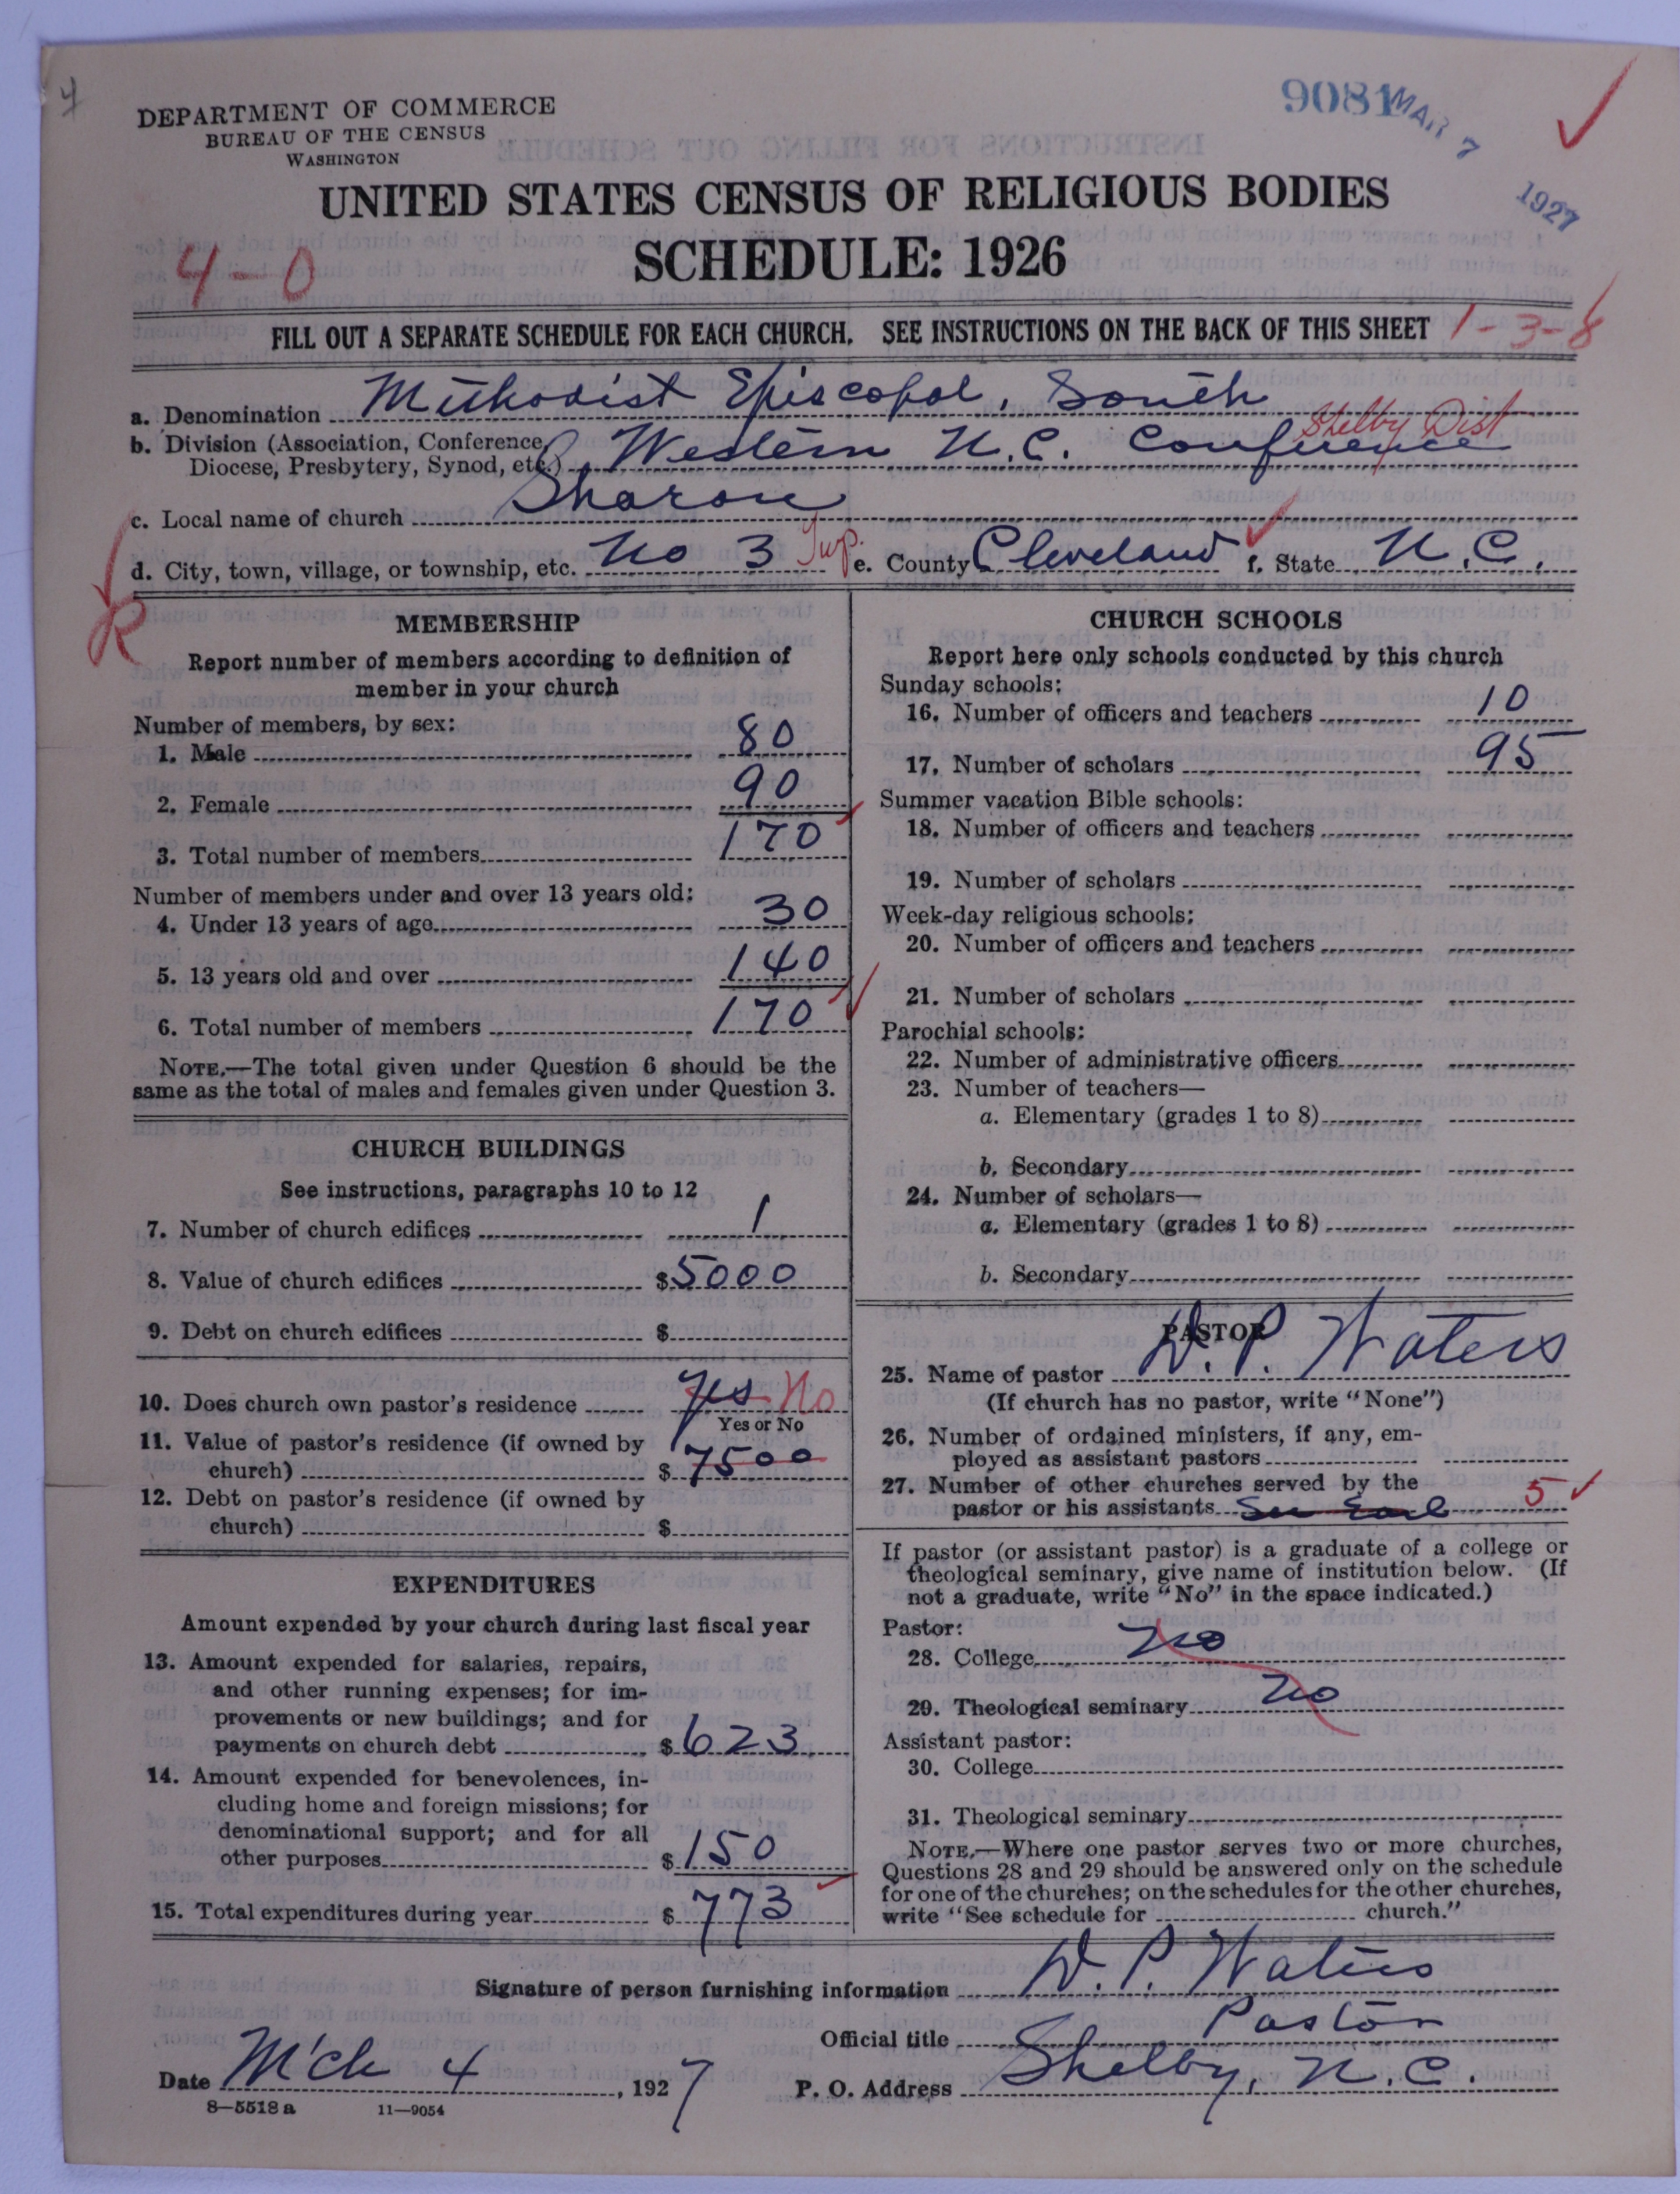 4
DEPARTMENT OF COMMERCE
BUREAU OF THE CENSUS
WASHINGTON
9081
MAR 7 1927
UNITED STATES CENSUS OF RELIGIOUS BODIES
SCHEDULE: 1926
4-0
FILL OUT A SEPARATE SCHEDULE FOR EACH CHURCH. SEE INSTRUCTIONS ON THE BACK OF THIS SHEET 1-3-8
a. Denomination Methodist Episcopal, South
b. Division (Association, Conference, Shelby Dist
Diocese, Presbytery, Synod, etc.) Western N.C. Conference
c. Local name of church Sharon
d. City, town, village, or township, etc. No 3 Twp. e. County Cleveland f. State N.C.
R
MEMBERSHIP
Report number of members according to definition of
member in your church
Number of members, by sex:
1. Male 80
2. Female 90
3. Total number of members 170
Number of members under and over 13 years old:
4. Under 13 years of age 30
5. 13 years old and over 140
6. Total number of members 170
NOTE.—The total given under Question 6 should be the
same as the total of males and females given under Question 3.
CHURCH BUILDINGS
See instructions, paragraphs 10 to 12
7. Number of church edifices 1
8. Value of church edifices $5000
9. Debt on church edifices $
10. Does church own pastor's residence Yes No
Yes or No
11. Value of pastor's residence (if owned by
church) $7500
12. Debt on pastor's residence (if owned by
church) $
EXPENDITURES
Amount expended by your church during last fiscal year
13. Amount expended for salaries, repairs,
and other running expenses; for im-
provements or new buildings; and for
payments on church debt $623
14. Amount expended for benevolences, in-
cluding home and foreign missions; for
denominational support; and for all
other purposes $150
15. Total expenditures during year $773
CHURCH SCHOOLS
Report here only schools conducted by this church
Sunday schools:
16. Number of officers and teachers 10
17. Number of scholars 95
Summer vacation Bible schools:
18. Number of officers and teachers
19. Number of scholars
Week-day religious schools:
20. Number of officers and teachers
21. Number of scholars
Parochial schools:
22. Number of administrative officers
23. Number of teachers—
a. Elementary (grades 1 to 8)
b. Secondary
24. Number of scholars—
a. Elementary (grades 1 to 8)
b. Secondary
PASTOR
25. Name of pastor W. P. Waters
(If church has no pastor, write "None")
26. Number of ordained ministers, if any, em-
ployed as assistant pastors
27. Number of other churches served by the
pastor or his assistants See 5
If pastor (or assistant pastor) is a graduate of a college or
theological seminary, give name of institution below. (If
not a graduate, write "No" in the space indicated.)
Pastor:
28. College No
29. Theological seminary No
Assistant pastor:
30. College
31. Theological seminary
NOTE.—Where one pastor serves two or more churches,
Questions 28 and 29 should be answered only on the schedule
for one of the churches; on the schedules for the other churches,
write "See schedule for church."
Signature of person furnishing information W. P. Waters
Official title Pastor
Date M'ch 4, 1927 P. O. Address Shelby, N.C.
8—5518 a 11—9054